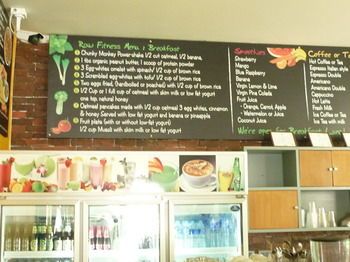 Raw Fitness Menu : Breakfast
Chunky Monkey Powershake 1/2 cut oatmeal, 1/2 banana,
1 tbs organic peanut butter, 1 scoop of protein powder
3 Egg whites omelet with spinach with 1/2 cup of brown rice
3 Scrambled egg whites with tofu 1/2 cup of brown rice
Two eggs fried, (hardboiled or poached) with 1/2 cup of brown rice
1/2 Cup or 1 full cup of oatmeal with skim milk or low fat yogurt
one tsp. natural honey
Oatmeal pancakes made with 1/2 cup oatmeal 3 egg whites, cinnamon
& honey Served with low fat yogurt and banana or pineapple
Fruit plate (with or without low-fat yogurt)
1/2 cup Muesli with skim milk or low fat yogurt
Smoothies
Strawberry
Mango
Blue Raspberry
Banana
Virgin Lemon & Lime
Virgin Pina Colada
Fruit Juice
- Orange, Carrot, Apple
- Watermelon or Juice
Coconut Juice
Coffee or
Hot Coffee or Tea
Espresso Italian style
Espresso Double
Americano
Americano Double
Cappuccino
Hot Latte
Fresh Milk
Ice Coffee or Tea
Ice Tea with milk
We're open for Breakfast